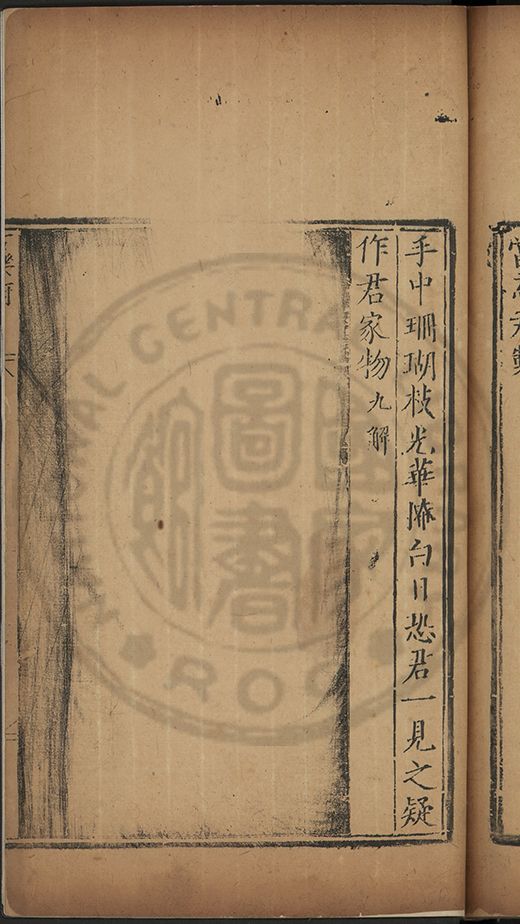 手中珊瑚枝光華掩白日恐君一見之疑
作君家物九解
樂府
NATIONAL CENTRAL
ROC
圖書